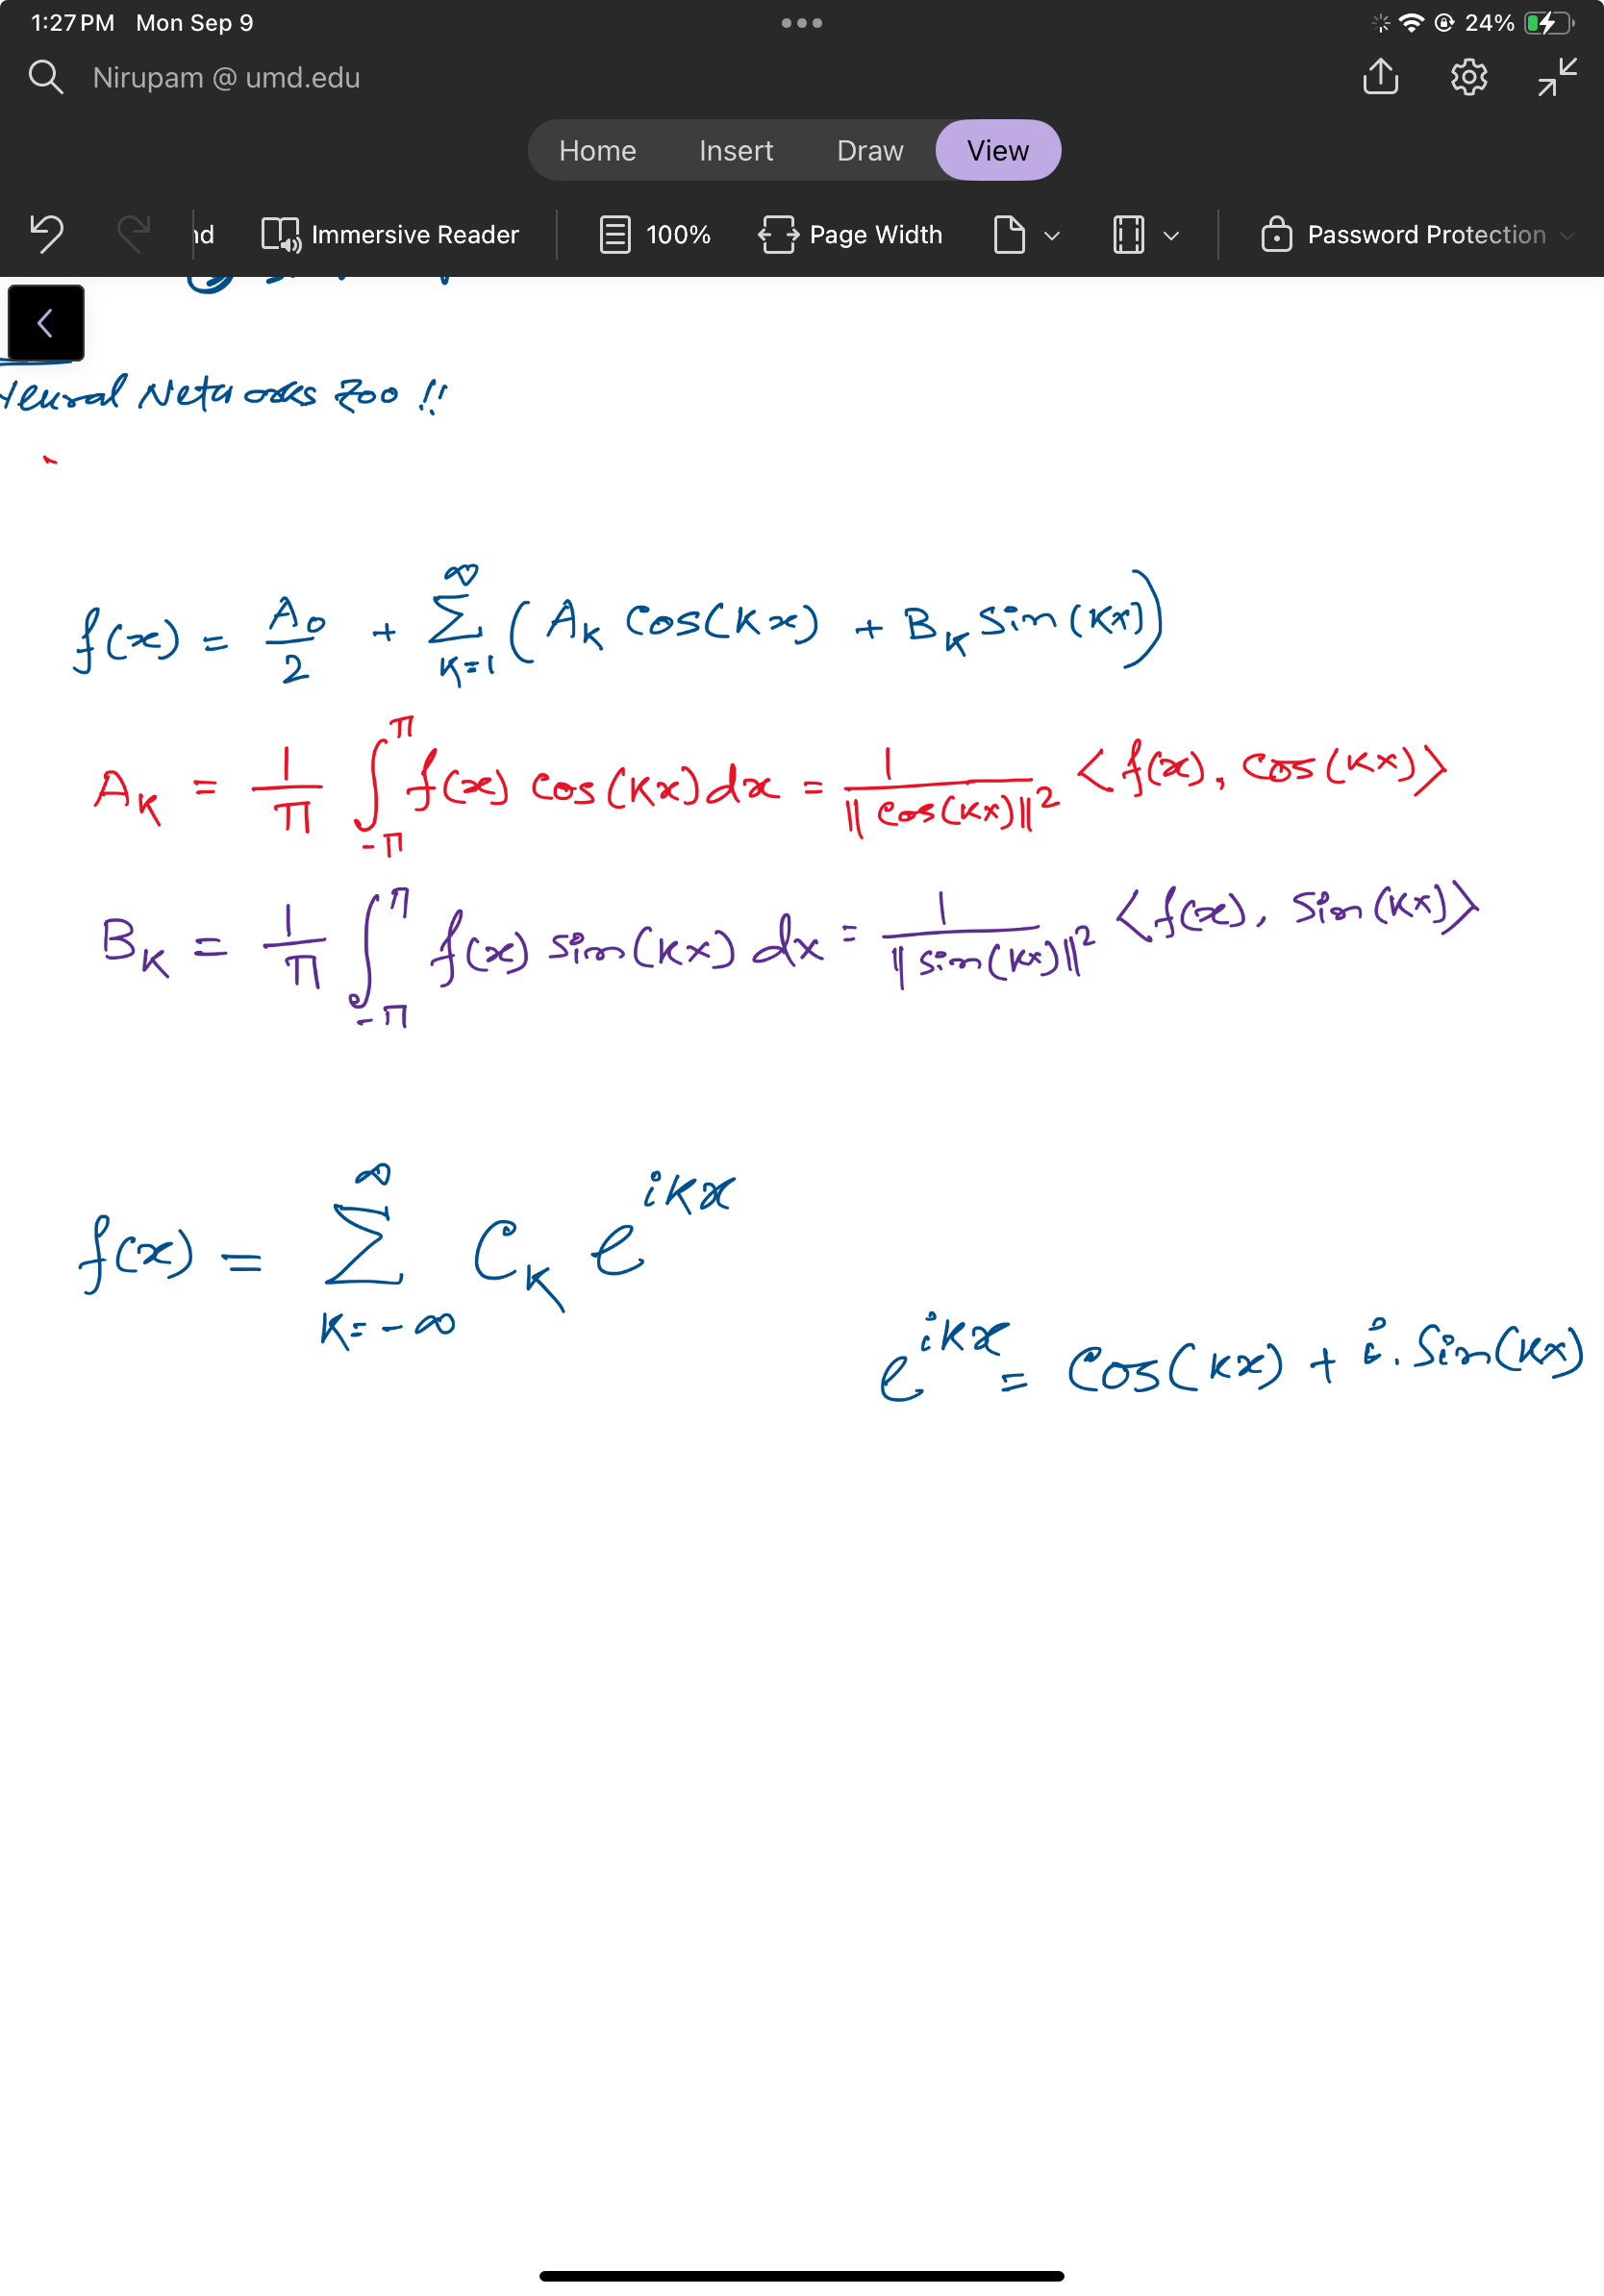 1:27 PM Mon Sep 9 24%
Nirupam @ umd.edu
Home Insert Draw View
nd Immersive Reader 100% Page Width Password Protection
Neural Networks Zoo !!
f(x) = A₀/2 + ∑_{K=1}^{∞} (A_K cos(Kx) + B_K sin(Kx))
A_K = 1/π ∫_{-π}^{π} f(x) cos(Kx) dx = 1/‖cos(Kx)‖² ⟨f(x), cos(Kx)⟩
B_K = 1/π ∫_{-π}^{π} f(x) sin(Kx) dx = 1/‖sin(Kx)‖² ⟨f(x), sin(Kx)⟩
f(x) = ∑_{K=-∞}^{∞} C_K e^{iKx}
e^{iKx} = cos(Kx) + i. sin(Kx)